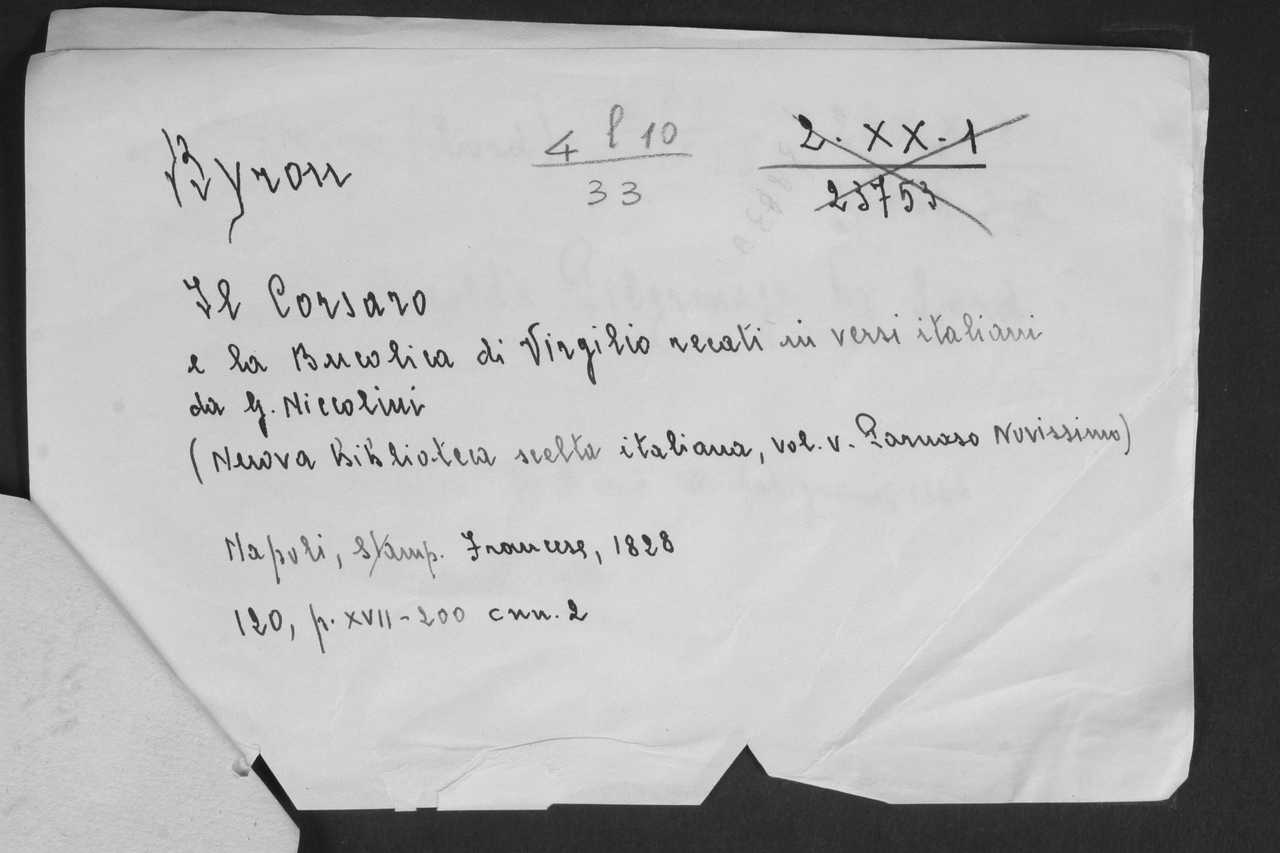 Byron
4 l 10
33
2. XX. 1
23753
Il Corsaro
e la Bucolica di Virgilio recati in versi italiani
da G. Niccolini
(Nuova Biblioteca scelta italiana, vol. V. Parnaso Novissimo)
Napoli, Stamp. Francese, 1828
120, p. XVII-200 cnn. 2